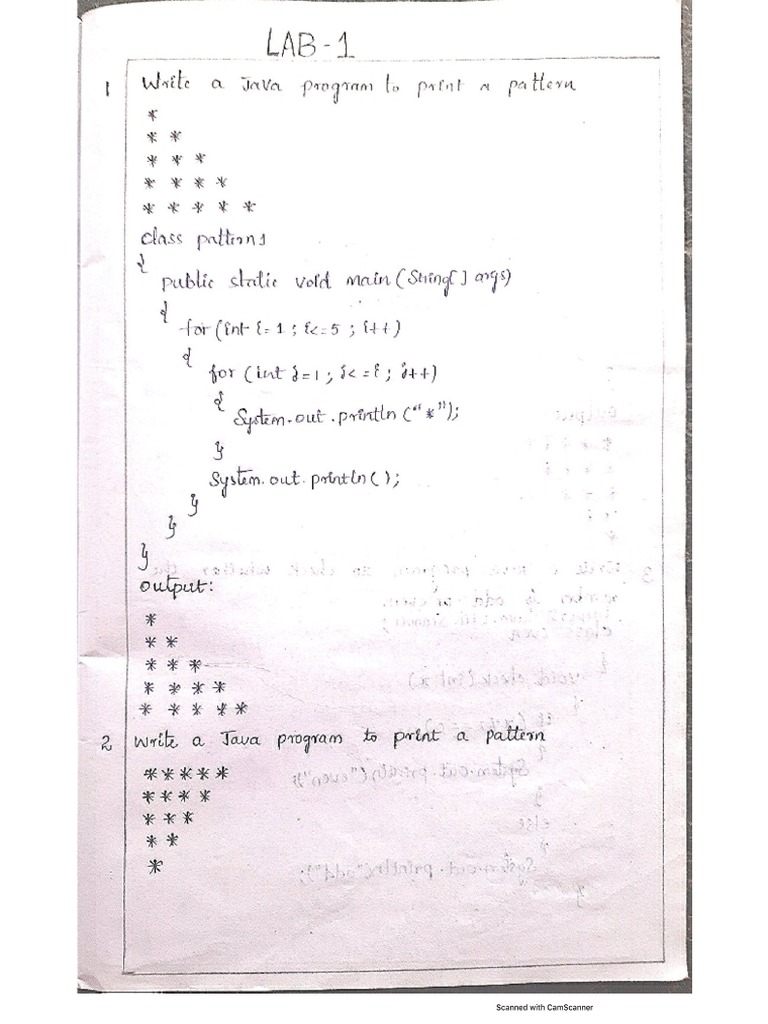 LAB-1
1 Write a Java program to print a pattern
*
* *
* * *
* * * *
* * * * *
class pattern1
{
public static void main(String[] args)
{
for(int i=1; i<=5; i++)
{
for (int j=1; j<=i; j++)
{
System.out.println("*");
}
System.out.println();
}
}
}
output:
*
* *
* * *
* * * *
* * * * *
2 Write a Java program to print a pattern
*****
****
***
**
*
Scanned with CamScanner